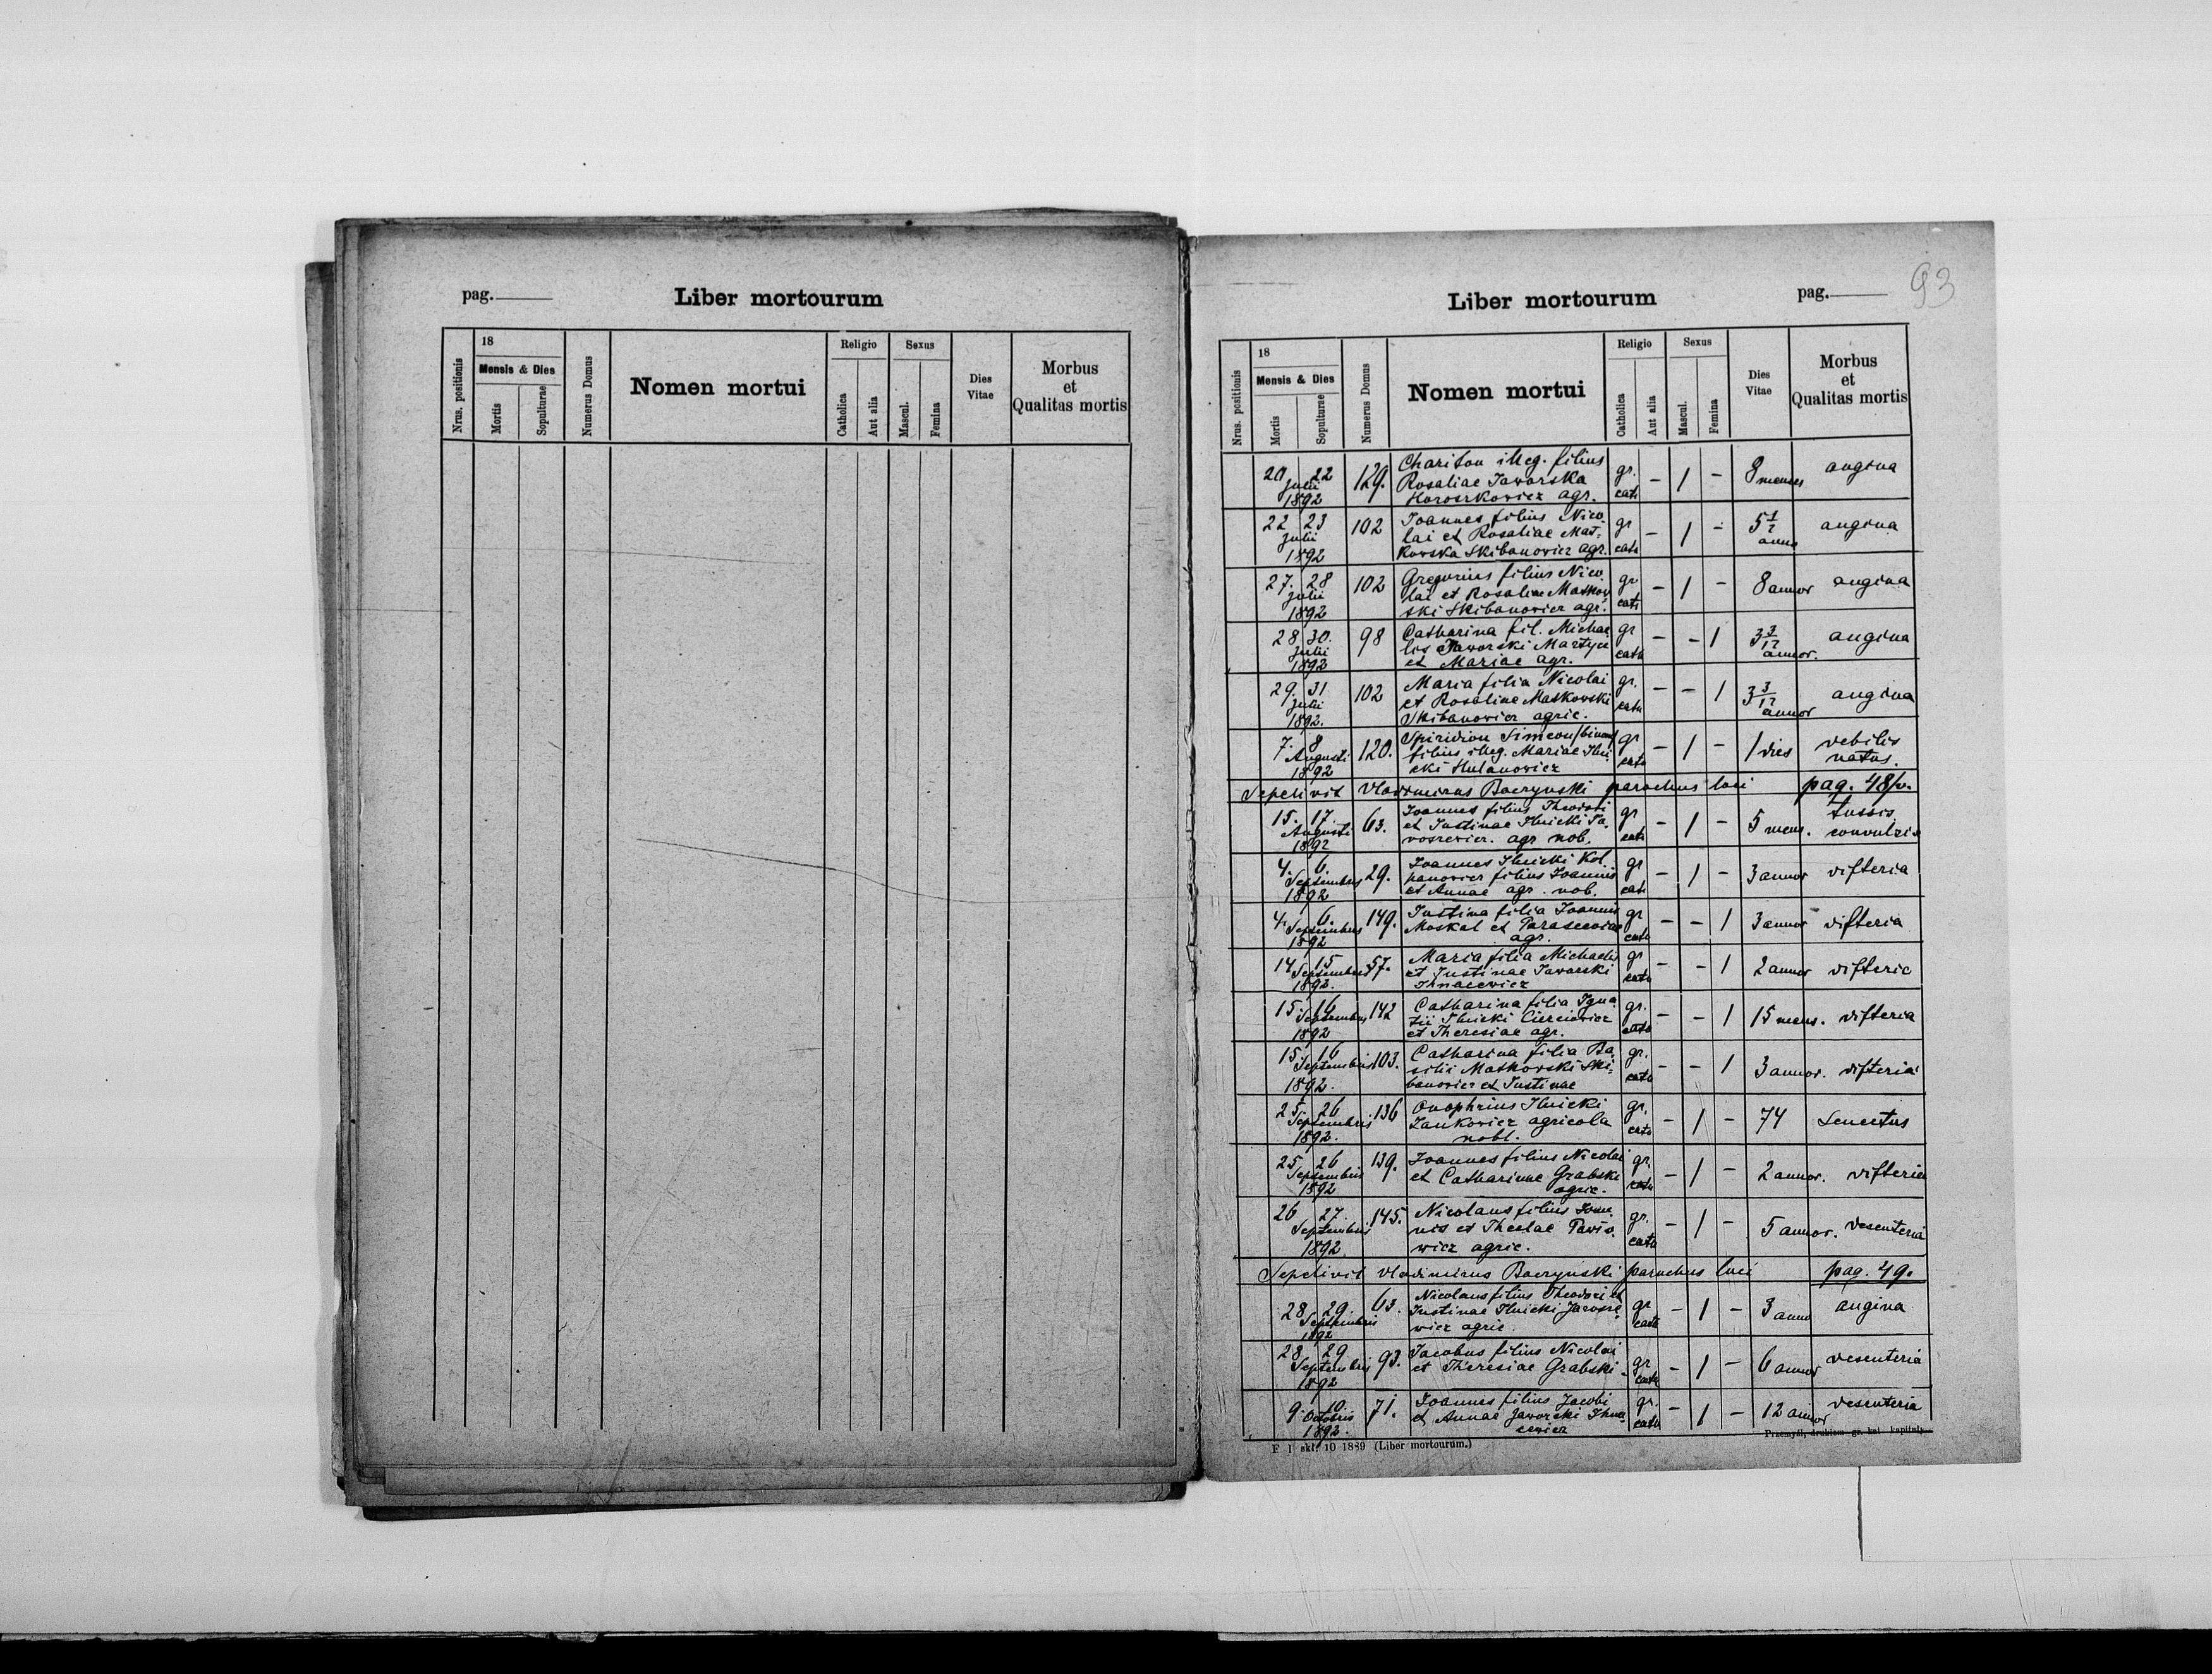 pag.
Liber mortourum
Nrus. positionis
18
Mensis & Dies
Mortis
Sepulturae
Numerus Domus
Nomen mortui
Religio
Catholica
Aut alia
Sexus
Mascul.
Femina
Dies
Vitae
Morbus
et
Qualitas mortis
93
Liber mortourum
pag.
Nrus. positionis
18
Mensis & Dies
Mortis
Sepulturae
Numerus Domus
Nomen mortui
Religio
Catholica
Aut alia
Sexus
Mascul.
Femina
Dies
Vitae
Morbus
et
Qualitas mortis
20 22 129. Chariton illeg. filius gr. - 1 - 8 menses angina
Julii Rosaliae Jaworska cath
1892 agr.
22 23 102 Joannes filius Nico- gr - 1 - 5 1/2 angina
Julii lai et Rosaliae Mat- cath
1892 kowska Skibanowicz agr.
27. 28 102 Gregorius filius Nico- gr - 1 - 8 annor angina
Julii lai et Rosaliae Matkow cath
1892 ski Skibanowicz agr.
28 30. 98 Catharina fil. Michae gr - - 1 angina
Julii lis Jaworski Martycz cath annor.
1892 et Mariae agr.
29. 31 102 Maria filia Nicolai gr. - - 1 3 3/12 angina
Julii et Rosaliae Matkowski cath annor
1892. Skibanowicz agric.
7. 8 120. Spiridion Simeon gr - 1 - 1 dies debilis
Augusti filius illeg. Mariae Ilni- cath natus.
1892 cki Hulanowicz
Sepelivit Vladimirus Baczynski parochus loci pag. 48/v.
15. 17. 63. Joannes filius Theodori gr - 1 - 5 mens. tussis
Augusti et Justinae Ilnicki cath convulziv
1892 agr nob.
4. 6. 29. Joannes Ilnicki Kol- gr - 1 - 3 annor difteria
Septembris panowicz filius Joannis
1892 et Annae agr. nob. cath
4. 6. 149. Justina filia Joannis gr - - 1 3 annor difteria
Septembris Moskal et Parascevae
1892 agr. cath
14 15 57. Maria filia Michaelis gr - - 1 2 annor difteria
Septembris et Justinae Jaworski
1892. Ihnacewicz cath
15 16 142 Catharina filia Igna- gr. - - 1 15 mens. difteria
Septembris tii Ilnicki
1892 et Theresiae agr. cath
15. 16 103. Catharina filia Ba- gr. - - 1 3 annor. difteria
Septembris silii Matkowski Ski-
1892. banowicz et Justinae cath
25. 26 136 Onophrius Ilnicki gr. - 1 - 74 Senectus
Septembris Zankowicz agricola
1892. nobl. cath
25 26 139. Joannes filius Nicolai gr. - 1 - 2 annor. difteria
Septembris et Catharinae Grabski
1892 agric. cath
26 27. 145. Nicolaus filius Joan- gr. - 1 - 5 annor. desenteria
Septembris nis et Theclae
1892. wicz agric. cath
Sepelivit Vladimirus Baczynski parochus loci pag. 49.
28 29. 63. Nicolaus filius Theodori et gr - 1 - 3 anno angina
Septembris Justinae Ilnicki
1892 wicz agric. cath
28 29 93. Jacobus filius Nicolai gr - 1 - 6 annor desenteria
Septembris et Theresiae Grabski
1892 cath
9 10. 71. Joannes filius Jacobi gr. - 1 - 12 annor desenteria
Octobris et Annae Jaworski Ihna
1892. cewicz cath
F 1 skł. 10 1889 (Liber mortourum.)
Przemyśl, drukiem gr. kat kapituły